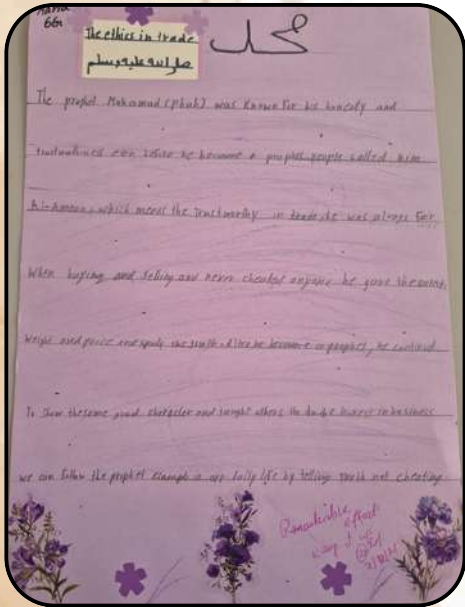 66
The ethics in trade
محمد
صلى الله عليه وسلم
The prophet Mohamad (pbuh) was known for his honesty and
even before he became a prophet people called him
Al-Ameen, which means the trustworthy in trade, he was always fair
When buying and selling and never cheated anyone he gave the
weight and price and the truth. After he became a prophet, he
To show the same good character and taught others to be in business
we can follow the prophet example in our daily life by telling truth not cheating
Remarkable
effort
keep it up